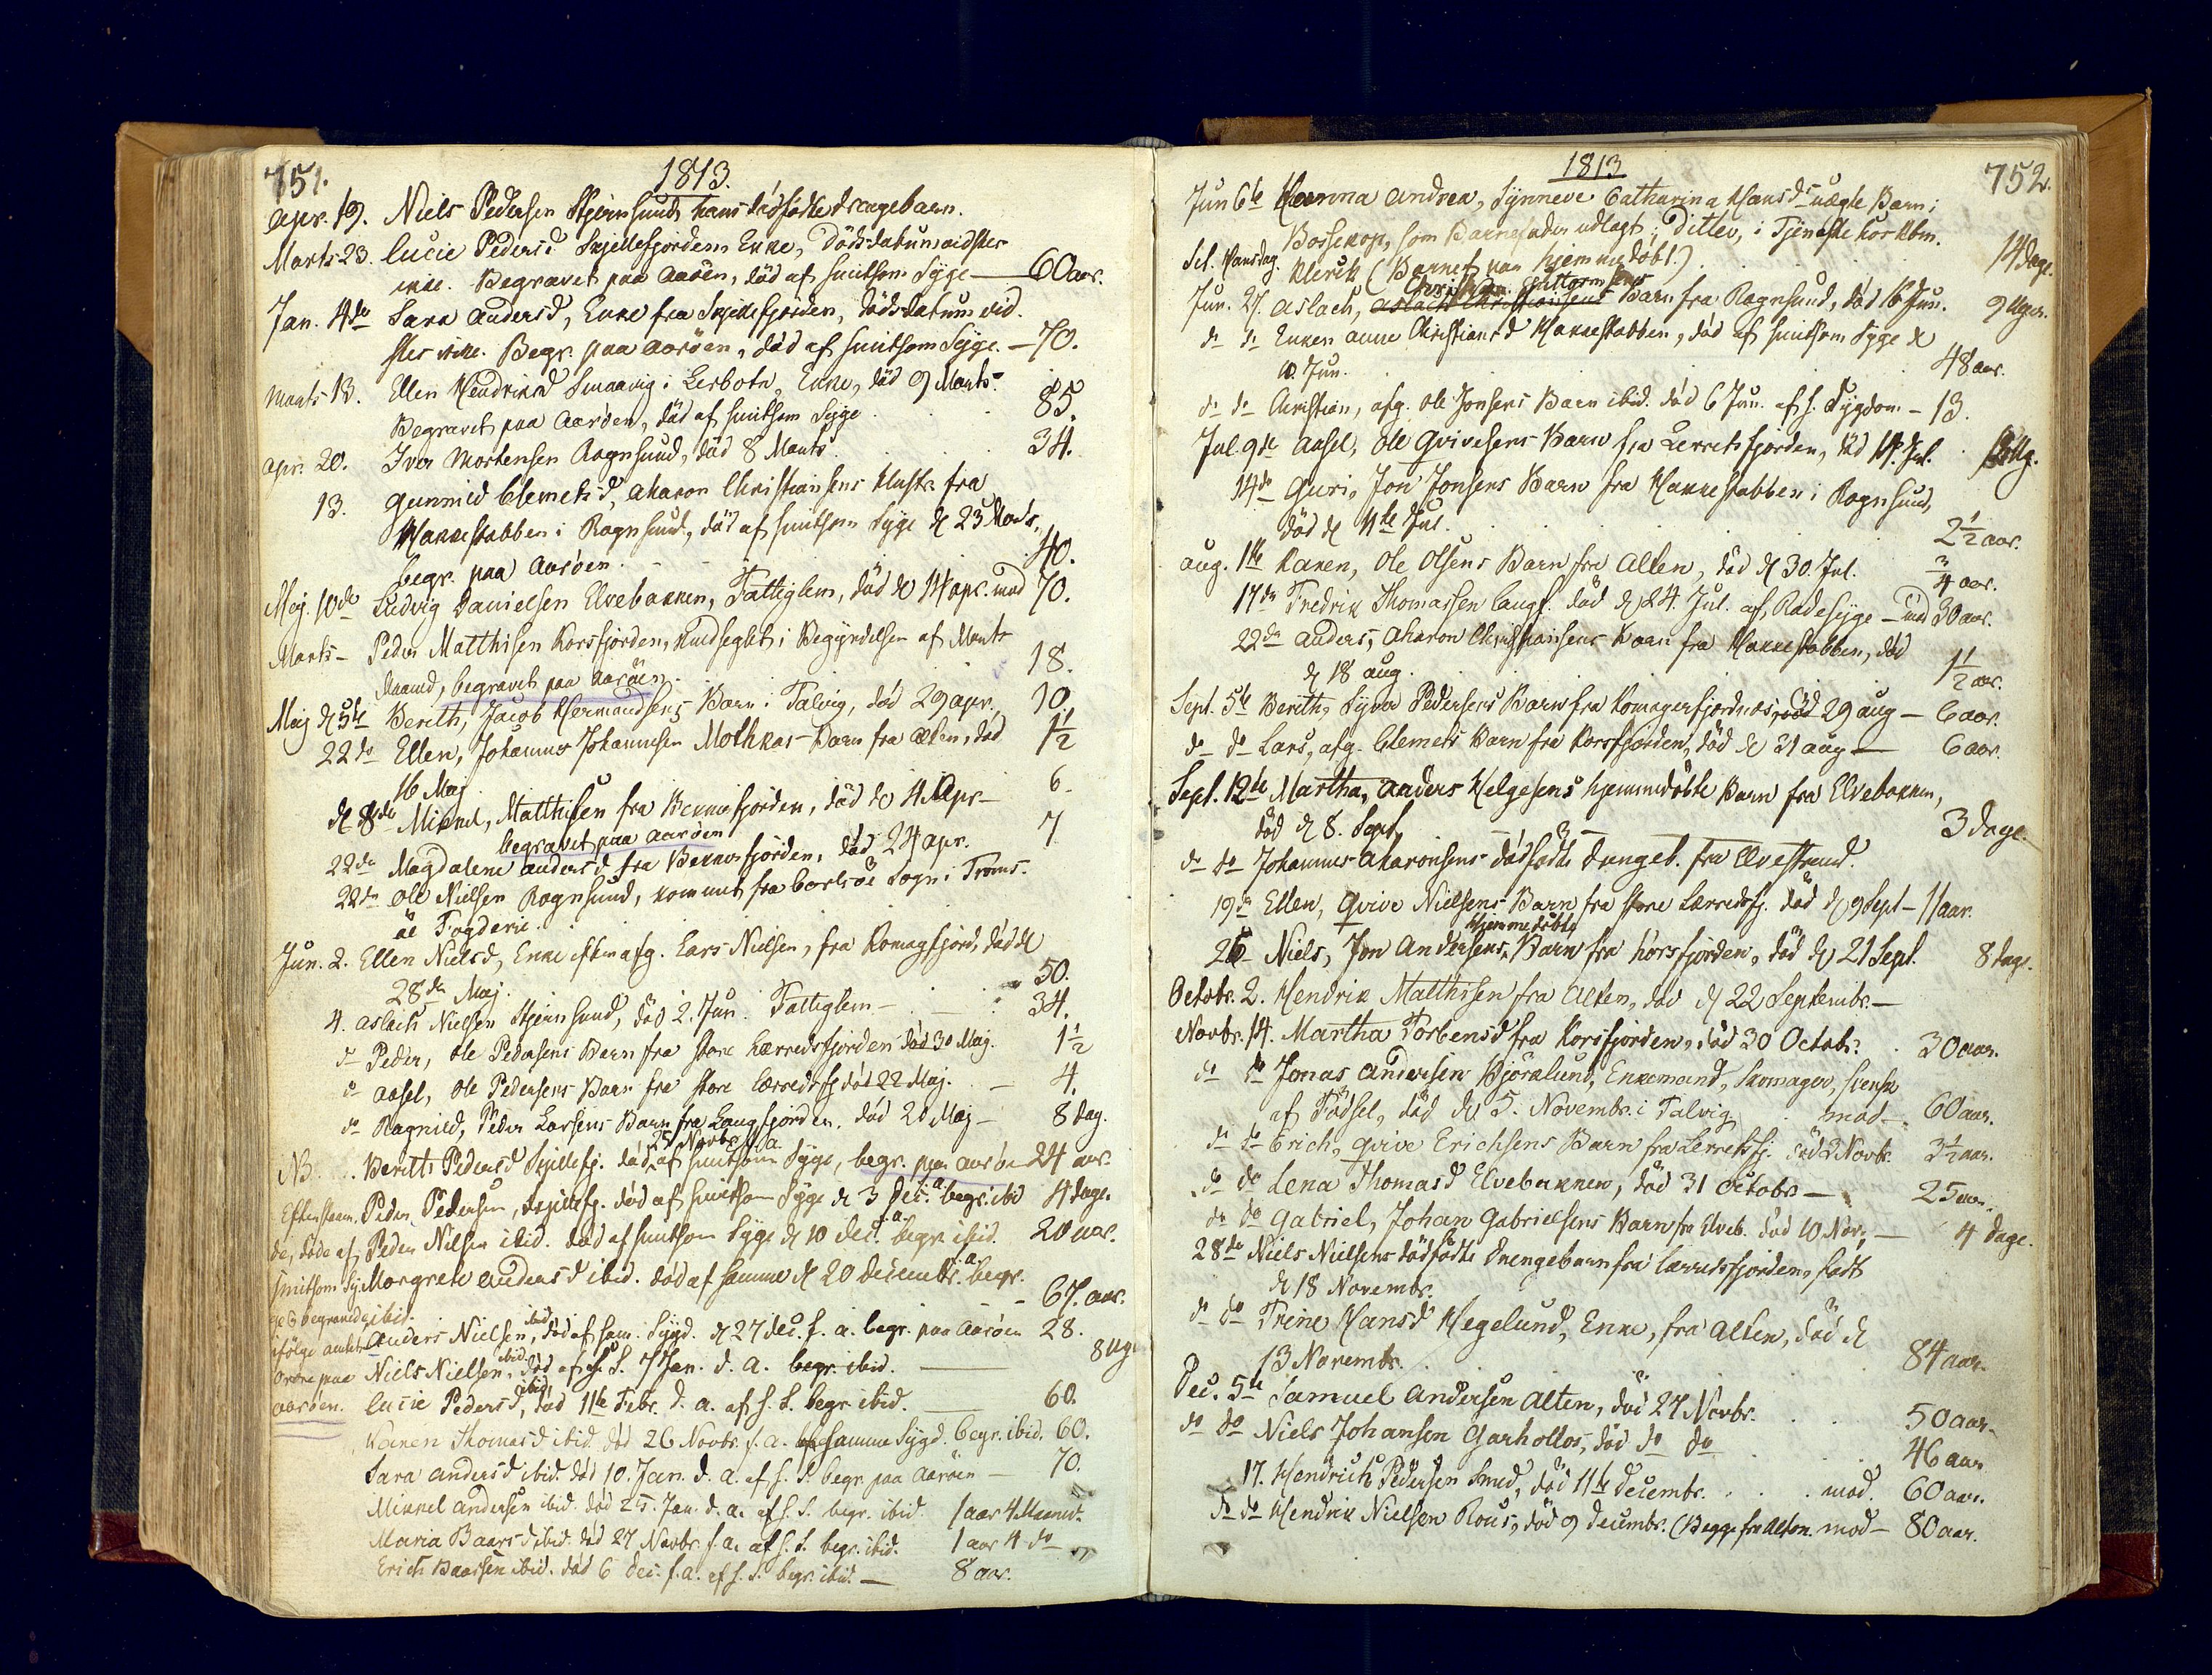 751.
1813.
Apr. 19. Niels Pedersen Stjernsunds hans dødfødte drengebarn.
Marts 23. Lucie Pedersd Skjellefjordens Enke, Dödsdatum vidstes
ikke. Begravet paa Aaröen, död af smitsom Syge — 60 aar.
Jan. 4de Sara Andersd, Enke fra Skjellefjorden, dödsdatum vid-
stes ikke. Begr. paa Aaröen, död af smitsom Syge. — 70.
Marts 13. Ellen Hendriksd Smaavig i Lerbotn, Enke, död 9 Marts.
Begravet paa Aaröen, död af smitsom Syge . . . 85.
Apr. 20. Iver Mortensen Rognsund, död 8 Marts . . 34.
13. Gunnild Clemetsd, Aharon Christiansens Hustr. fra
Hakkestabben i Rognsund, död af smitsom Syge d 23 Marts,
begr. paa Aaröen. - - 40.
Maj. 10de Ludvig Danielsen Elvebakken, Fattiglem, död d 14 Apr. mod 70.
Marts - Peder Matthisen Korsfjorden, i Begyndelsen af Marts
Maaned, begravet paa Aaröen. 18.
Maj d 5te Berith, Jacob Hermandsens Barn i Talvig, död 29 Apr., 10.
22de Ellen, Johannes Johannesen Mothkas Barn fra Alten, död 1½
16 Maj.
d 8de Mikkel, Matthisen fra Bekkosfjorden, död d 4 Apr — 6-
begravet paa Aaröen
22de Magdalene Andersd fra Bekkosfjorden, död 24 Apr. 7
22de Ole Nielsen Rognsund, kommet fra Carlsöe Sogn i Troms-
öe Fogderie.
Jun. 2. Ellen Nielsd, Enke efter afg. Lars Nielsen, fra Komagfjord, död d
28de Maj. 50.
4. Aslach Nielsen Stjernsund, död 2. Jun. Fattiglem — 34.
do Peder, Ole Pedersens Barn fra store Lærredsfjorden död 30 Maj. 1½
do Aasel, Ole Pedersens Barn fra store Lærredsfj död 22 Maj. — 4.
do Ragnild, Peder Larsens Barn fra Langfjorden. död 20 Maj — 8 dag.
25 Novbr. f. a.
NB. . . Berith Pedersd Skjellefj. död af smitsom Syge, begr. paa Aaröe 24 aar.
Efterstaaen- Peder Pedersen, Skjellefj. död af smitsom Syge d 3 Dec. f. a. begr. ibid 4 dage.
de, döde af Peder Nilsen ibid. död af smitsom Syge d 10 Dec. f. a. begr. ibid. 20 aar.
smitsom Sy- Margrete Andersd ibid. död af samme d 20 Decembr. f. a. begr.
ge & begravede ibid. - 67. aar.
ifölge amtets Anders Nielsen, ibid. död af sam. Sygd. d 27 Dec. f. a. begr. paa Aaröen 28.
Ordre paa Niels Nielsen, ibid. död af s. S. 7 Jan. d. a. begr. ibid. — 8 Ug.
Aaröen. Lucie Pedersd, ibid. död 11te Febr. d. a. af s. S. begr. ibid. — 60.
Karen Thomasd ibid. död 26 Novbr. f. a. af samme Sygd. begr. ibid. 60.
Sara Andersd ibid. död 10. Jan. d. a. af s. S. begr. paa Aaröen — 70.
Mikkel Andersen ibid. död 25. Jan. d. a. af s. S. begr. ibid. 1 aar 4 Maaned.
Maria Baarsd, ibid. död 27 Novbr. f. a. af s. S. begr. ibid. 1 aar 4 do
Erich Baarsen ibid. död 6 Dec. f. a. af s. S. begr. ibid. — 8 aar.
1813
752.
Jun 6te Hanna Andrea, Synneve Catharina Hansds uægte Barn i
Bossekop, som Barnefader udlagt: Ditlev, i Tjeneste hos Kbm.
Set. Hansdag. Klerck (Barnet var hjemmedöbt.) . . . 14 dage.
Christian Guttormsens
Jun. 27. Aslach, Aslach Christiansens Barn fra Rognsund, död 16 Jun. 9 Uger.
do do Enken Anne Christiansd Hakkestabben, död af smitsom Syge d
10. Jun. 48 aar.
do do Christian, afg. Ole Jonsens Barn ibid. död 6 Jun. af s. Sygdom — 13.
Jul. 9de Aasel, Ole Qvivesens Barn fra Lerretsfjorden, död 14. Jul.
14de Guri, Jon Jonsens Barn fra Hakkestabben i Rognsund,
död d 11te Jul. 2½ aar.
Aug. 1ste Karen, Ole Olsens Barn fra Alten, död d 30. Jul. ¾ aar.
17de Fredrik Thomassen Langf. död d 24. Jul. af Radesyge — 30 aar.
22de Anders, Aharon Christiansens Barn fra Hakkestabben, död
d 18 Aug. 1½ aar.
Sept. 5te Berith, Syver Pedersens Barn fra Komagerfjordnes, död 29 Aug — 6 aar.
do do Lars, afg. Clemets Barn fra Korsfjorden, död d 31 Aug — 6 aar.
Sept. 12te Martha, Anders Helgesens hjemmedöbte Barn fra Elvebakken,
död d 8. Sept. 3 dage.
do do Johannes Aharonsens dödfödte drengeb. fra Elvestrand.
19de Ellen, Qvive Nielsens Barn fra store Lærredsfj. död d 9 Sept — 11 aar.
hjemmedöbte
26 Niels, Jon Andersens Barn fra Korsfjorden, död d 21 Sept. 8 dage.
Octobr. 2. Hendrik Matthisen fra Alten, död d 22 Septembr. —
Novbr. 14. Martha Torbensd fra Korsfjorden, död 30 Octobr. . 30 aar.
do do Jonas Andersen Björklund, Enkemand, Skomager, svensk
af Födsel, död d 5. Novembr. i Talvig, mod — 60 aar.
do do Erich, Qvive Erichsens Barn fra Lerretsfj. död 2 Novbr. 3½ aar.
do do Lena Thomasd Elvebakken, död 31 Octobr — 25 aar.
do do Gabriel, Johan Gabrielsens Barn fra Elveb. död 10 Nov. — 4 dage.
28de Niels Nielsens dödfödte Drengebarn fra Lærredsfjorden, födt
d 18 Novembr.
do do Trine Hansd Hegelund, Enke, fra Alten, död d
13 Novembr. 84 aar.
Dec. 5te Samuel Andersen Alten, död 27 Novbr. . . 50 aar.
do do Niels Johansen Garhollos, död do do 46 aar
17. Hendrich Pedersen Smed, död 11te Decembr. . . . mod. 60 aar.
do do Hendrik Nielsen Rous, död 9 Decembr. (Begge fra Alten mod — 80 aar.